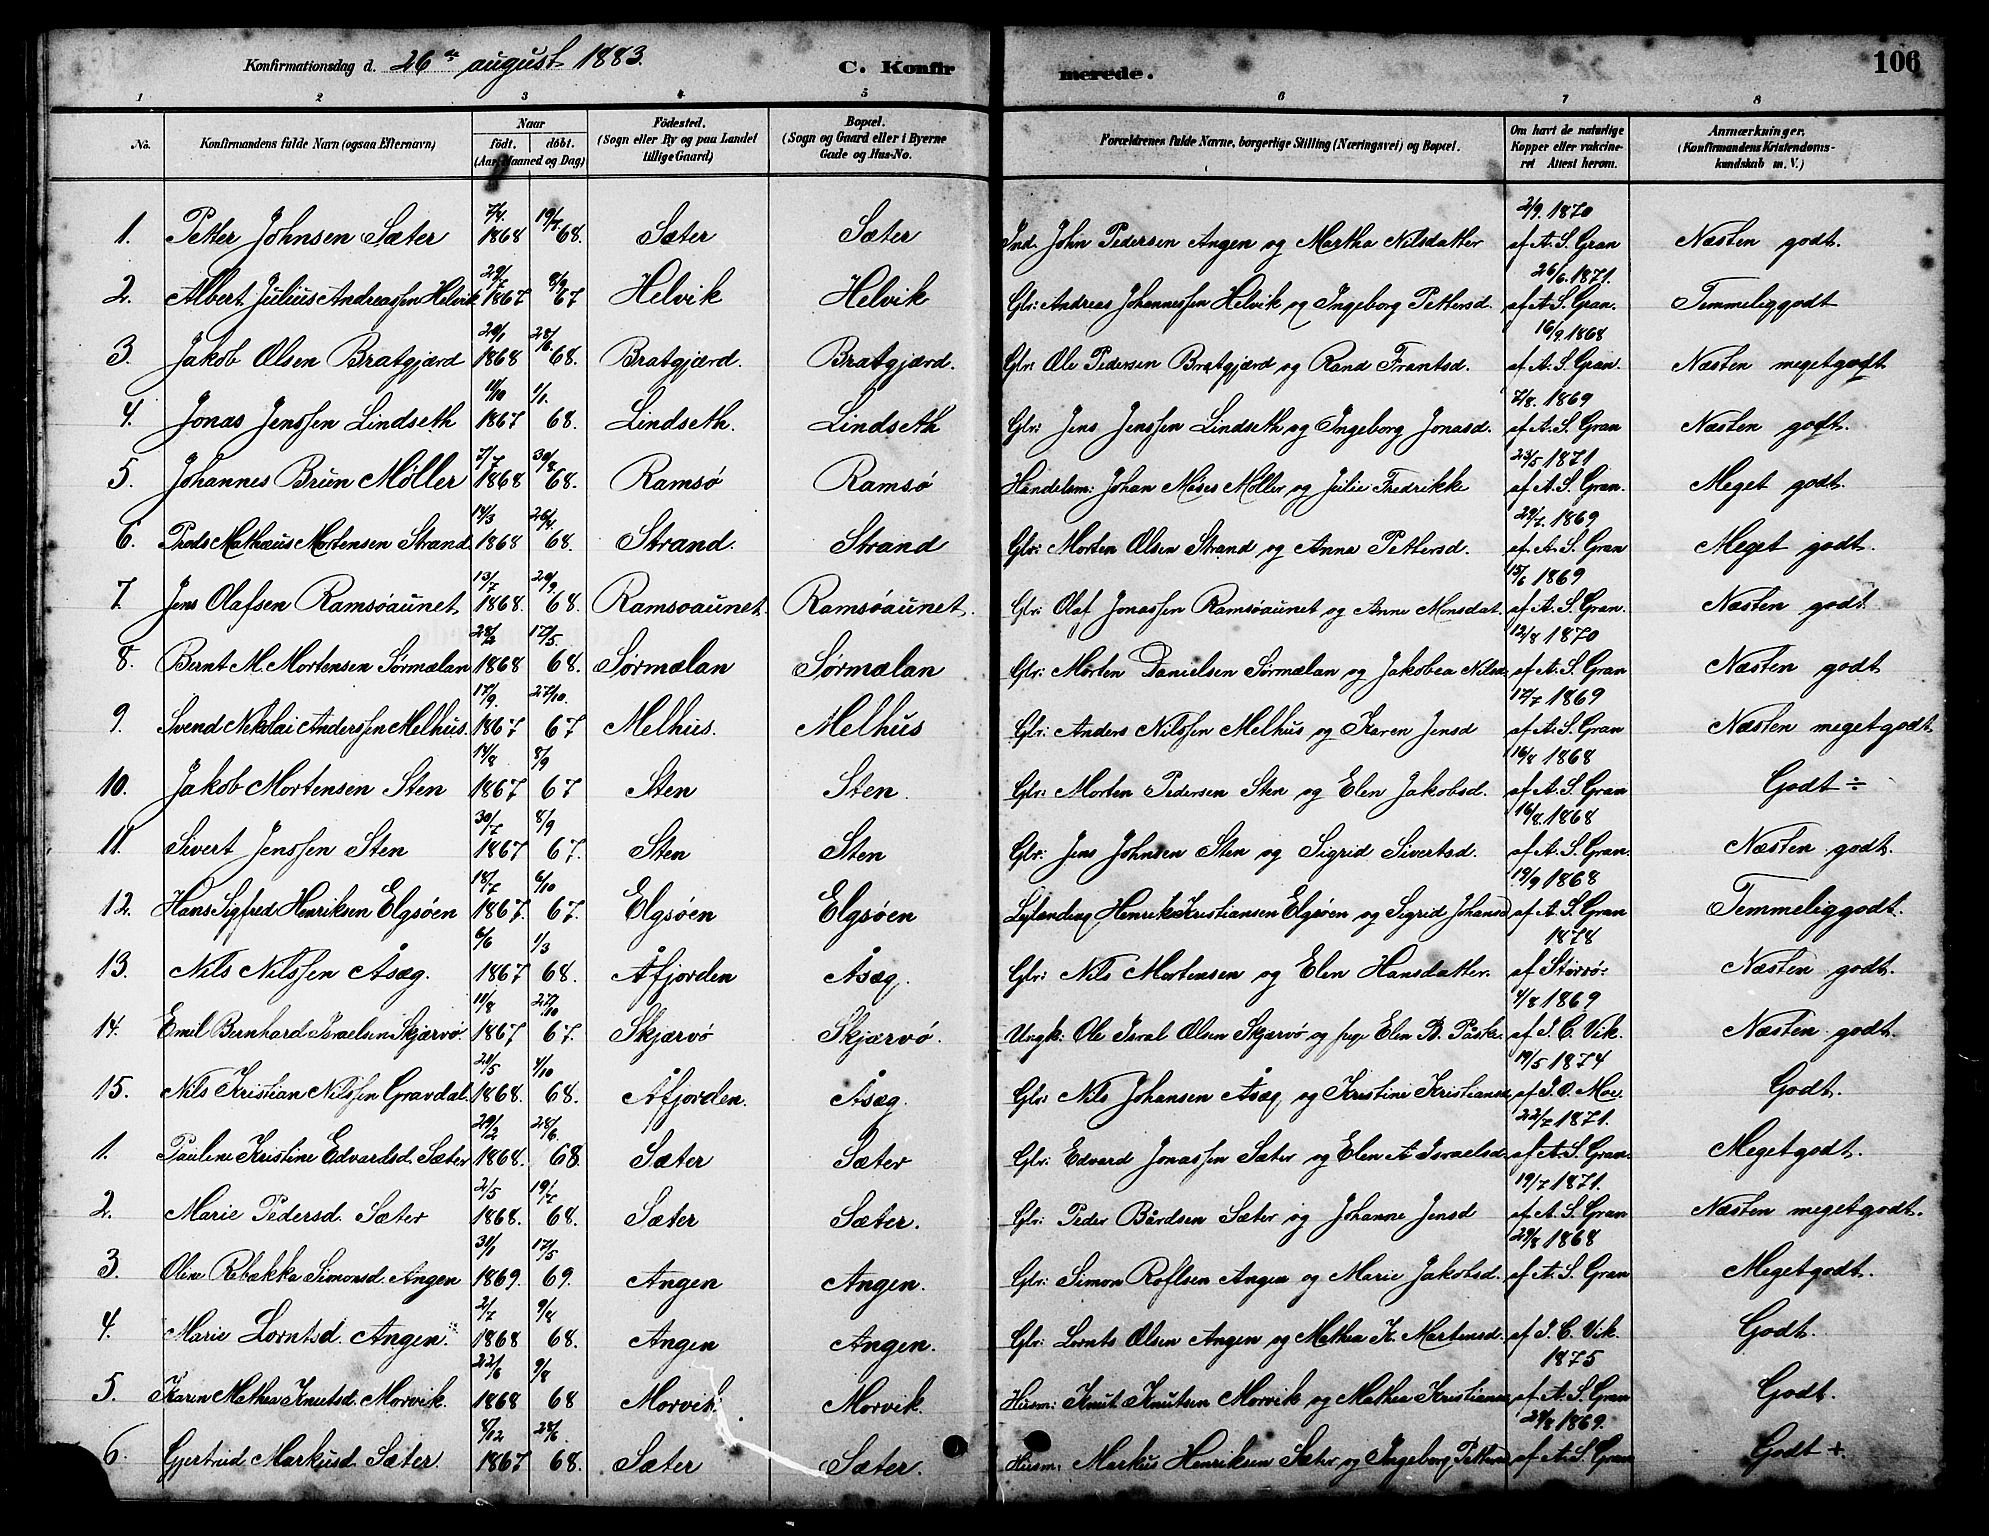 Konfirmationsdag d. 26de august 1883. C. Konfirmerede. 106
1 2 3 4 5 6 7 8
No. Konfirmandens fulde Navn (ogsaa Efternavn) Naar födt. döbt. (Aar, Maaned og Dag) Födested. (Sogn eller By og paa Landet tillige Gaard) Bopæl. (Sogn og Gaard eller i Byerne Gade og Hus-No. Forældrenes fulde Navne, borgerlige Stilling (Næringsvei) og Bopæl. Om havt de naturlige Kopper eller vakcineret Attest herom. Anmærkninger. (Konfirmandens Kristendomskundskab m. V.)
1. Petter Johnsen Sæter 7/4. 1868 19/7 68. Sæter Sæter Ind. John Pedersen Angen og Martha Nilsdatter 2/9. 1870 af A. S. Gran Næsten godt.
2. Albert Julius Andreassen Helvik 29/7 1867 8/9 67 Helvik Helvik Gbr: Andreas Johannessen Helvik og Ingeborg Pettersd. 26/6. 1871. af A. S. Gran. Temmeliggodt
3. Jakob Olsen Bratgjærd 20/1 1868 28/6. 68. Bratgjærd. Bratgjærd. Gbr: Ole Pedersen Bratgjærd og Rand Frantsd. 16/9. 1868 af A. S. Gran. Næsten megetgodt
4. Jonas Jenssen Lindseth 1867 1/1. 68. Lindseth. Lindseth Gbr: Jens Jenssen Lindseth og Ingeborg Jonasd. 7/8. 1869 af A. S. Gran Næsten godt.
5. Johannes Brun Møller 1868 30/8 68. Ramsö Ramsö Handelsm: Johan Moses Møller og Julie Fredrikke 23/5 1871 af A. S. Gran. Meget godt.
6. Mathæus Mortensen Strand 14/3 1868 26/4. 68. Strand. Strand Gbr: Morten Olsen Strand og Anne Pettersd. 29/7. 1869 af A. S. Gran Meget godt.
7. Jens Olafsen Ramsöaunet 13/7 1868. 20/9. 68. Ramsoaunet Ramsöaunet. Gbr: Olaf Jonassen Ramsöaunet og Anne Monsdat. 15/6 1869 af A. S. Gran. Næsten godt
8. Bernt M. Mortensen Sörmælan 28/2 1868 17/5 68. Sörmælan Sörmælan Gbr: Morten Danielsen Sörmælan og Jakobea Nilsd. 12/8 1870 af A. S. Gran Næsten godt
9. Svend Nikolai Anderssen Melhus. 17/9. 1867 27/10. 67 Melhus. Melhus Gbr: Anders Nilssen Melhus og Karen Jensd 17/7 1869 af A. S. Gran Næsten megetgodt
10. Jakob Mortensen Sten 14/8 1867 8/9 67 Sten Sten. Gbr: Morten Pedersen Sten og Elen Jakobsd. 16/8 1868 af A. S. Gran Godt ÷
11. Sivert Jenssen Sten 30/7 1867 8/9 67. Sten Sten Gbr: Jens Johnsen Sten og Sigrid Sivertsd. 16/8. 1868 af A. S. Gran. Næsten godt.
12. Hans Sigfred Henriksen Elgsöen 18/7 1867. 6/10 67. Elgsöen Elgsöen Henrik Kristiansen Elgsöen og Sigrid Johansd 19/9 1868 af A. S. Gran Temmeliggodt.
13. Nils Nilssen Åsæg. 6/6 1867 1/3 68. Åfjorden Åsæg. Gbr: Nils Mortensen og Elen Hansdatter. 1878 af Störrö. Næsten godt.
14. Emil Bernhard Israelsen Skjærvö. 11/8 1867 27/10 67. Skjærvö Skjærvö. Ungk: Ole Isral Olsen Skjærvö og pige Elen B. Påske. 4/8 1869 af I. C. Vik. Næsten godt.
15. Nils Kristian Nilssen Gravdal 20/5 1868. 4/10 68. Åfjorden. Åsæg. Gbr: Nils Johansen Åsæg og Kristine Kristiansd. 19/5 1874 af I. O. Moe. Godt.
1. Pauline Kristine Edvardsd. Sæter 29/2 1868. 28/6. 68. Sæter Sæter Gbr: Edvard Jonassen Sæter og Elen A Israelsd. 22/7 1871. af A. S. Gran. Megetgodt.
2. Marie Pedersd. Sæter 2/5 1868. 19/7 68. Sæter Sæter. Gbr: Peder Bårdsen Sæter og Johanne Jensd 19/7 1871. af A. S. Gran Næsten megetgodt.
3. Oline Rebækka Simonsd. Angen 31/1 1869. 17/5 69. Angen Angen. Gbr: Simon Roflsen Angen og Marie Jakobsd. 29/8 1868 af A. S. Gran Megetgodt.
4. Marie Lorntsd. Angen. 2/7 1868 9/8 68. Angen Angen. Gbr: Lornts Olsen Angen og Mathea K. Martensd. af I. C. Vik. Godt.
5. Karen Mathea Knutsd. Morvik. 22/6 1868 9/8 68 Morvik Morvik. Husm: Knut Knutsen Morvik og Mathea Kristiansd. 1875 af A. S. Gran Godt.
6. Gjertrud Markusd. Sæter. 8/12 1867 28/6. 68. Sæter Sæter. Husm: Markus Henriksen Sæter og Ingeborg Pettersd. 24/8 1869. af A. S. Gran Godt +